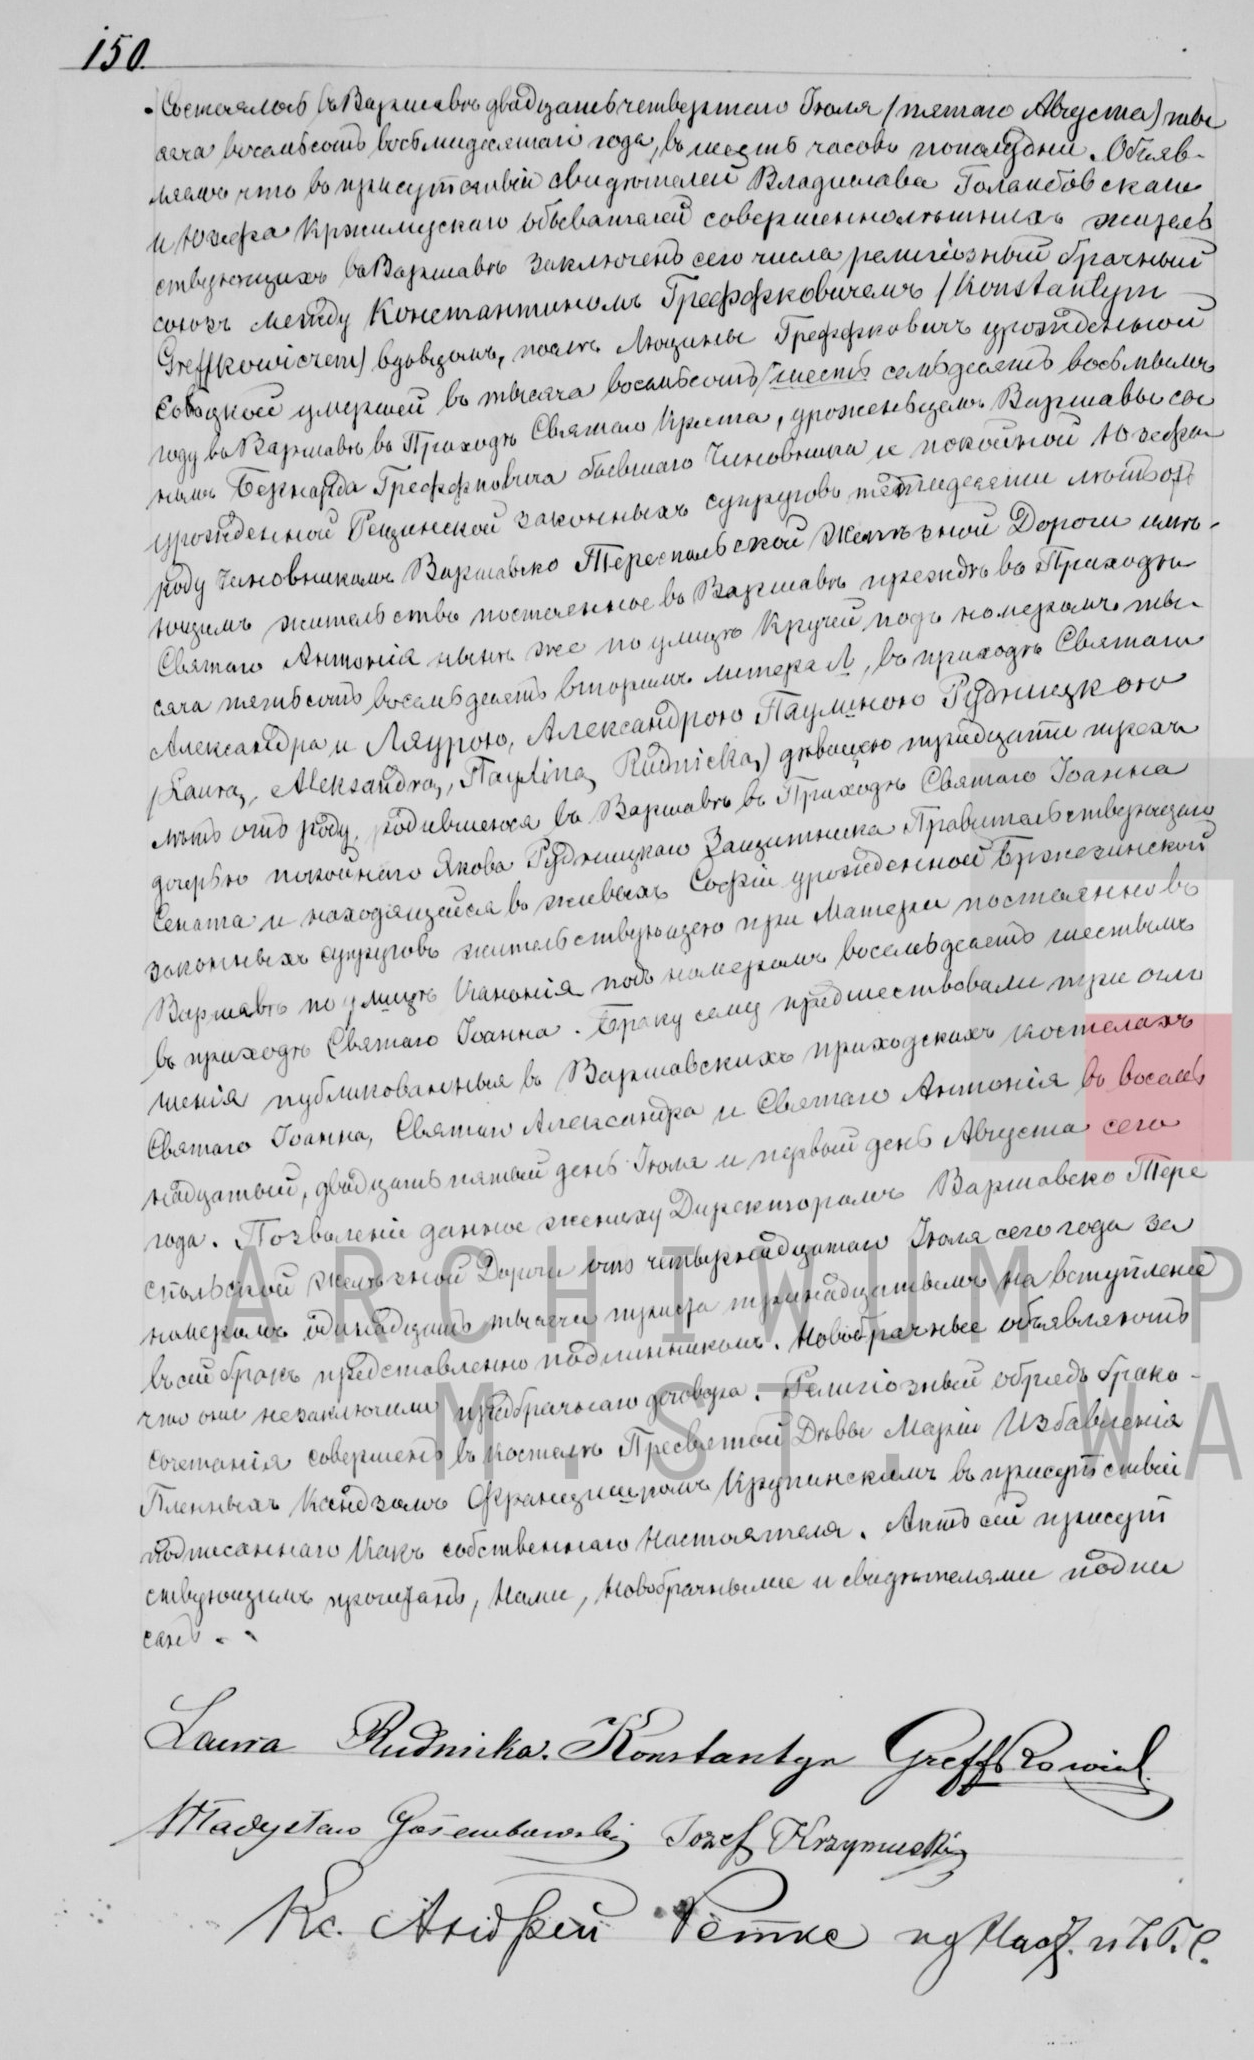 150.
Состоялось въ Варшавѣ двадцать четвертаго Іюля /пятаго Августа/ тыся
яча восемьсотъ восьмидесятаго года, въ шесть часовъ пополудни. Объяв-
ляемъ что въ присутствіи свидѣтелей Владислава Голембовскаго
и Юзефа Кржимускаго обывателей совершеннолѣтнихъ жител
ствующихъ въ Варшавѣ заключенъ сего числа религіозный брачный
союзъ между Константиномъ Греффковичемъ /Konstantym
Greffkowiczem/ вдовцомъ, послѣ Люцины Греффковичъ урожденной
умершей въ тысяча восемьсотъ шесть семьдесятъ восьмымъ
году въ Варшавѣ въ Приходѣ Святаго Креста, уроженцемъ Варшавы сы
номъ Бернарда Греффковича бывшаго Чиновника и покойной Юзефы
урожденной законныхъ супруговъ пятидесяти лѣтъ отъ
роду чиновникомъ Варшавско Тереспольской Желѣзной Дороги имѣ-
ющимъ жительство постоянное въ Варшавѣ прежде въ Приходѣ
Святаго Антонія нынѣ же по улицѣ Кручей подъ номеромъ ты
сяча пятьсотъ восемьдесятъ вторымъ литера Л, въ приходѣ Святаго
Александра и Ляурою, Александрою Паулиною Рудницкою
/Laurą, Aleksandrą, Paulīną Rudnicką/ дѣвицею тридцати трехъ
лѣтъ отъ роду, родившеюся въ Варшавѣ въ Приходѣ Святаго Іоанна
дочерью покойнаго Якова Рудницкаго Защитника Правительствующаго
Сената и находящейся въ живыхъ Софіи урожденной Бржезинской
законныхъ супруговъ жительствующею при Матери постоянно въ
Варшавѣ по улицѣ Канонія подъ номеромъ восемьдесятъ шестымъ
въ приходѣ Святаго Іоанна. Браку сему предшествовали три огла
шенія публикованныя въ Варшавскихъ приходскихъ костелахъ
Святаго Іоанна, Святаго Александра и Святаго Антонія въ восемь
надцатый, двадцать пятый день Іюля и первый день Августа сего
года. Позволеніе данное жениху Директоромъ Варшавско Тере
спольской Желѣзной Дороги отъ четырнадцатаго Іюля сего года за
номеромъ одинадцать тысячи триста тринадцатымъ на вступленіе
въ сей бракъ представленно подлинникомъ. Новобрачные объявляютъ
что они незаключили предбрачнаго договора. Религіозный обрядъ брако-
сочетанія совершенъ въ костелѣ Пресвятой Дѣвы Маріи Избавленія
Пленныхъ Ксендзомъ Францишкомъ Крупинскимъ въ присутствіи
подписаннаго Какъ собственнаго Настоятеля. Актъ сей присут
ствующимъ прочитанъ, Нами, Новобрачными и свидѣтелями подпи
санъ..
Laura Rudnicka. Konstantyn Greffkowicz
Władysław Gołembowski Jozef Krzymuski
Кс. Андрей Ретке
ARCHIWUM P
M ST. WA